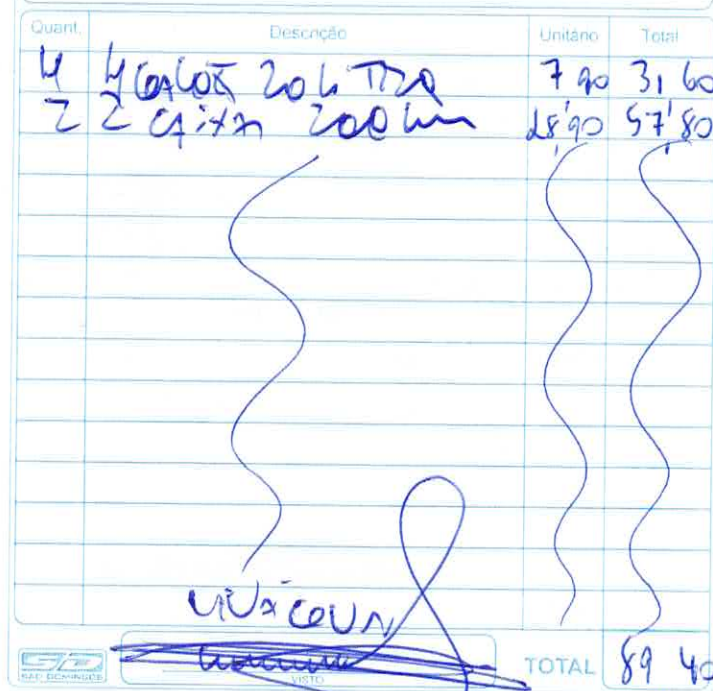 Quant. Descrição Unitário Total
4 4 GALOX 20 LITRO 7 90 31 60
2 2 CAIXA 200 28,90 57,80
SÃO DOMINGOS VISTO TOTAL 89 40